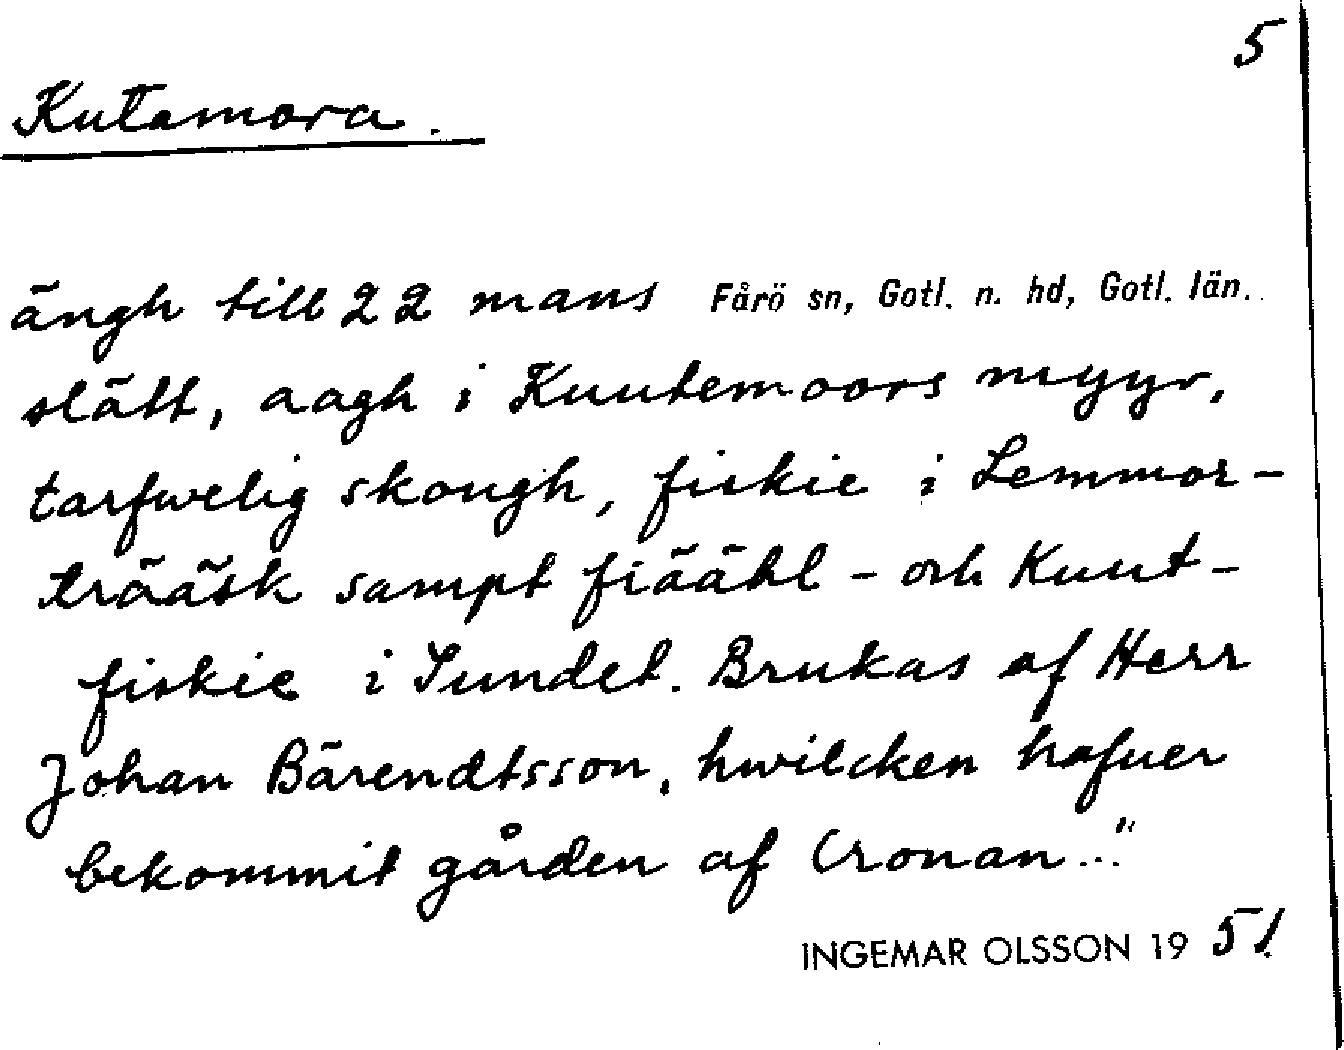 5
Kutamora.
ängh till 22 mans Fårö sn, Gotl. n. hd, Gotl. län.
slätt, aagh i Kuutemoors myyr,
tarfwelig skough, fiskie i Lemmor-
trääsk sampt fiäähl - och Kuut-
fiskie i Sundet. Brukas af Herr
Johan Bärendtsson, hwilcken hafuer
bekommit gården af Cronan..."
INGEMAR OLSSON 1951.